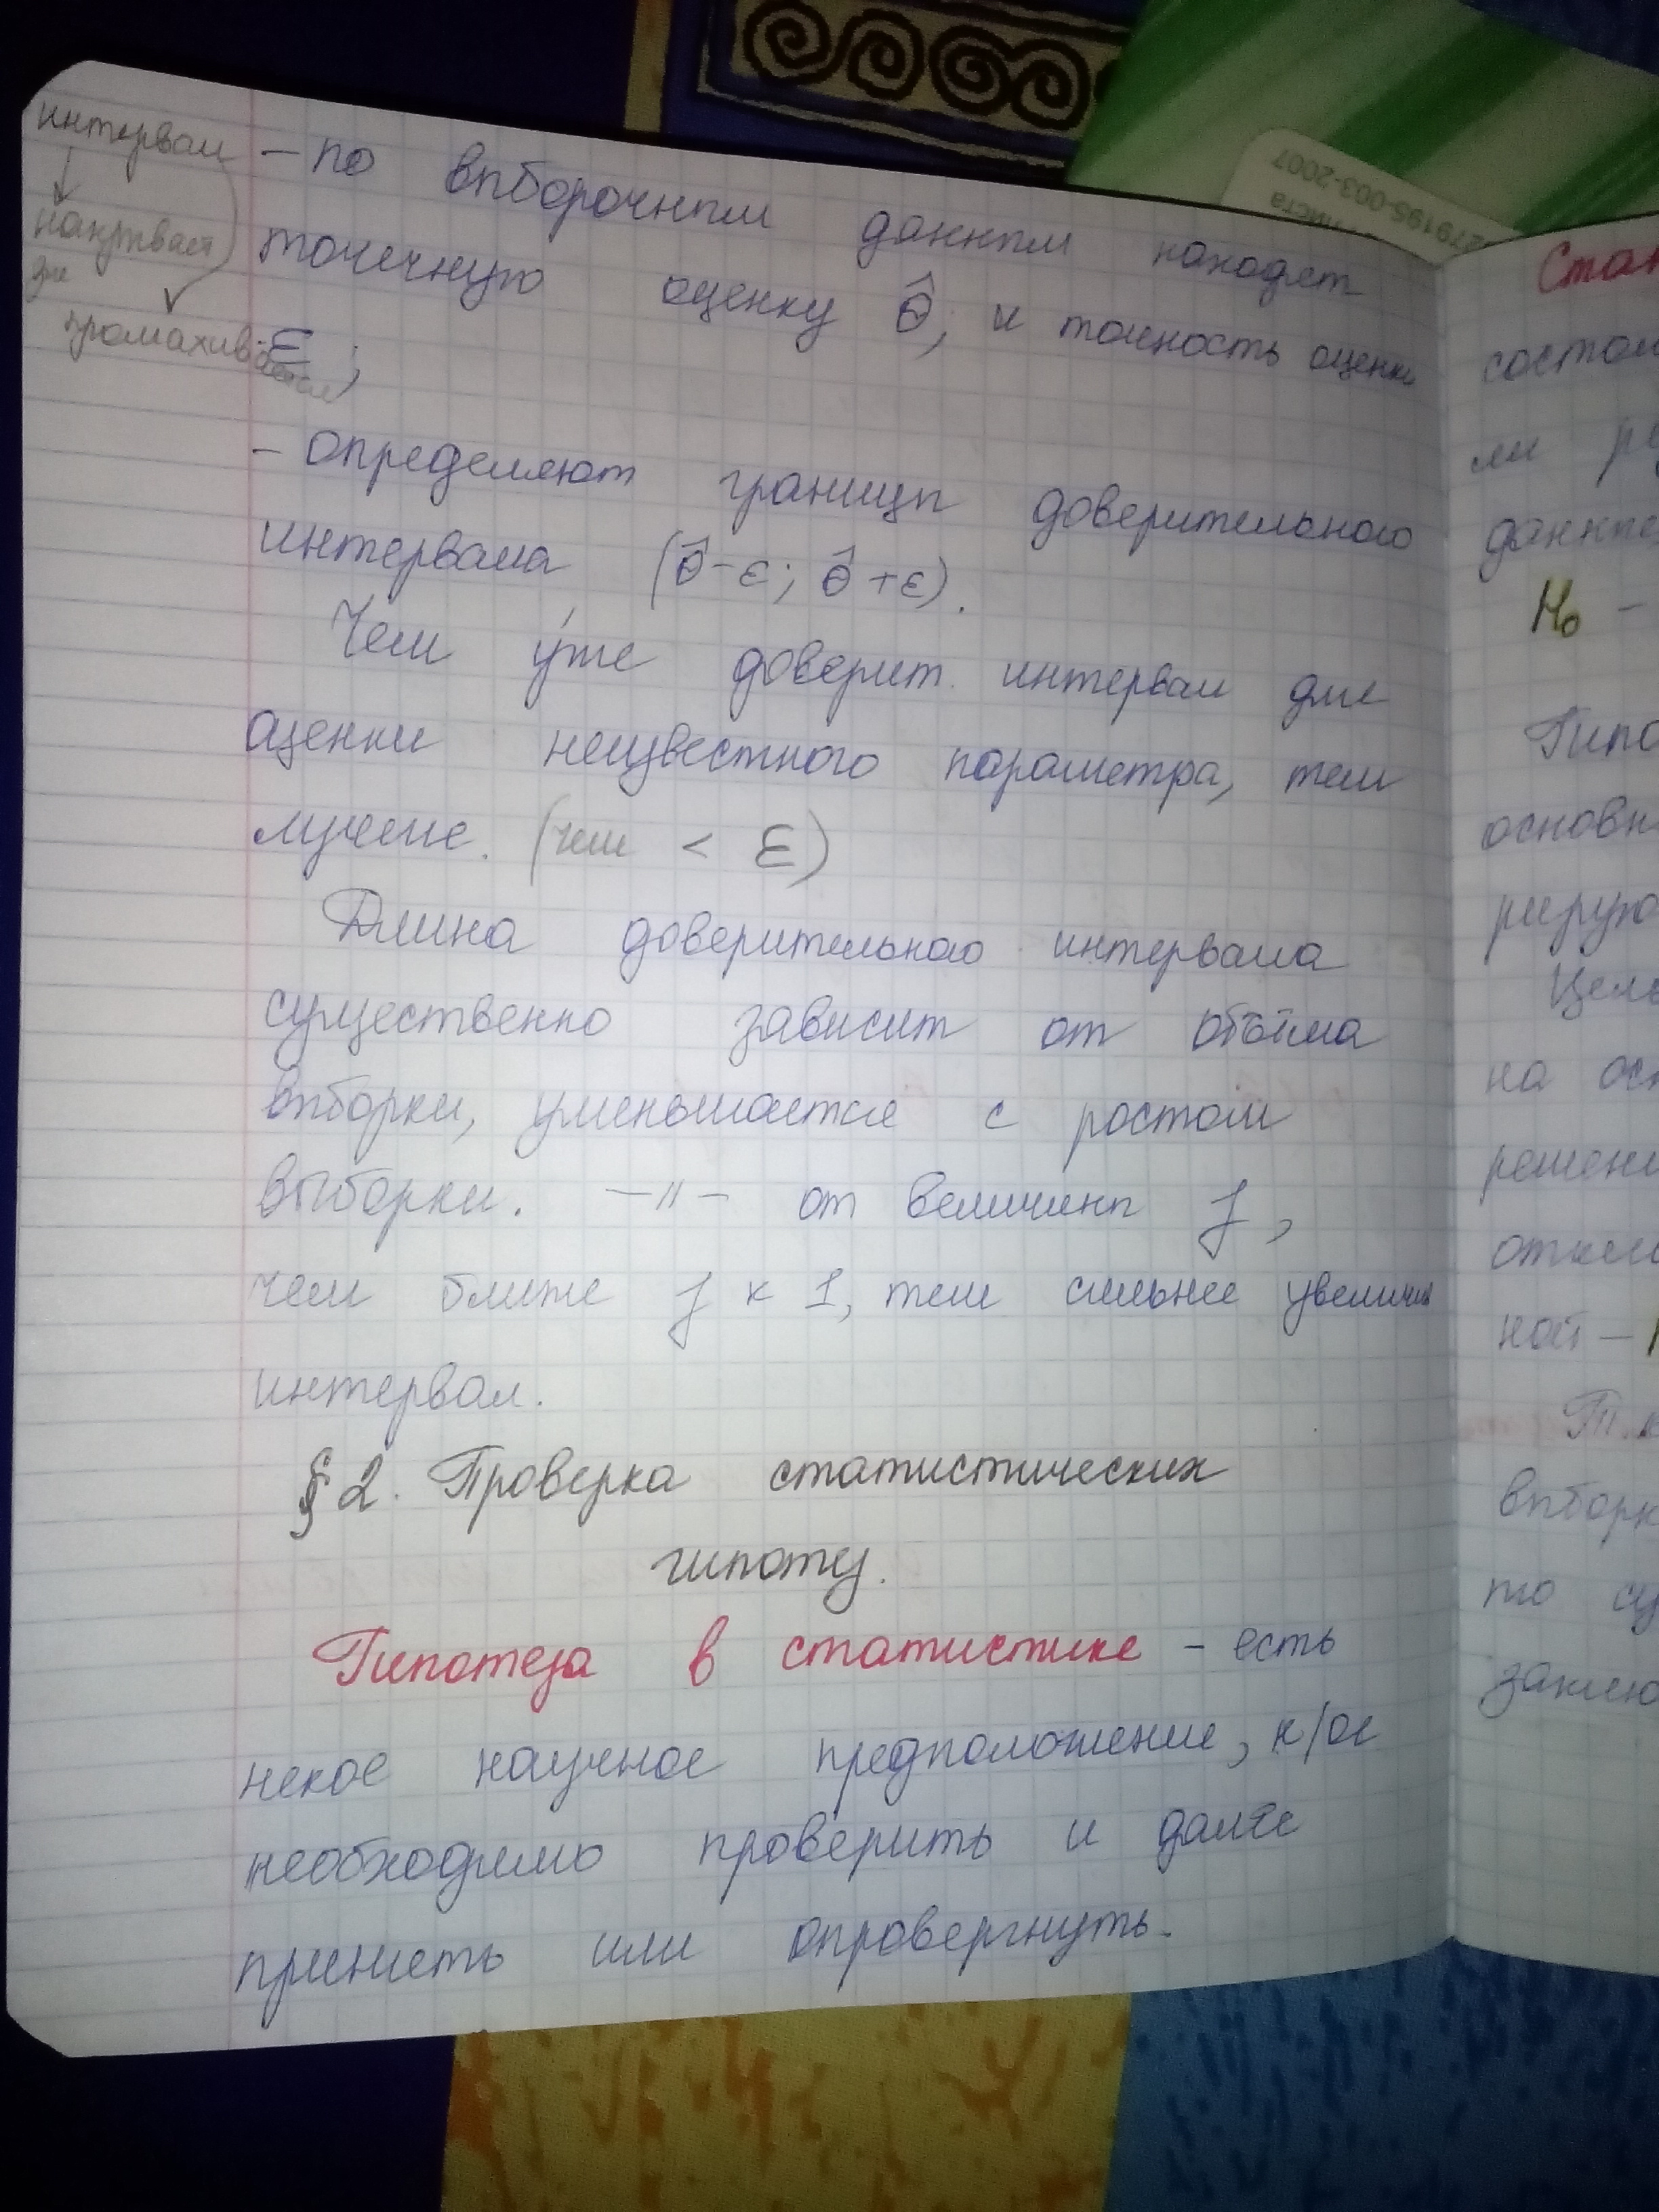 интервал
накрывает
промахивается
– по выборочным данным находят
точечную оценку θ̂, и точность оценки
ε;
– определяют границы доверительного
интервала (θ̂-ε; θ̂+ε).
Чем у́же доверит. интервал для
оценки неизвестного параметра, тем
лучше. (чем < ε)
Длина доверительного интервала
существенно зависит от объёма
выборки, уменьшается с ростом
выборки. –"– от величины γ,
чем ближе γ к 1, тем сильнее увелич
интервал.
§ 2. Проверка статистических
гипотез.
Гипотеза в статистике – есть
некое научное предположение, к/ое
необходимо проверить и далее
принять или опровергнуть.
279195-003-2007
листа
Стат
состои
ли
данные
H₀ –
Гипо
основн
Цель
на осн
решени
откло
ной –
Т.к
выборк
то су
заклю